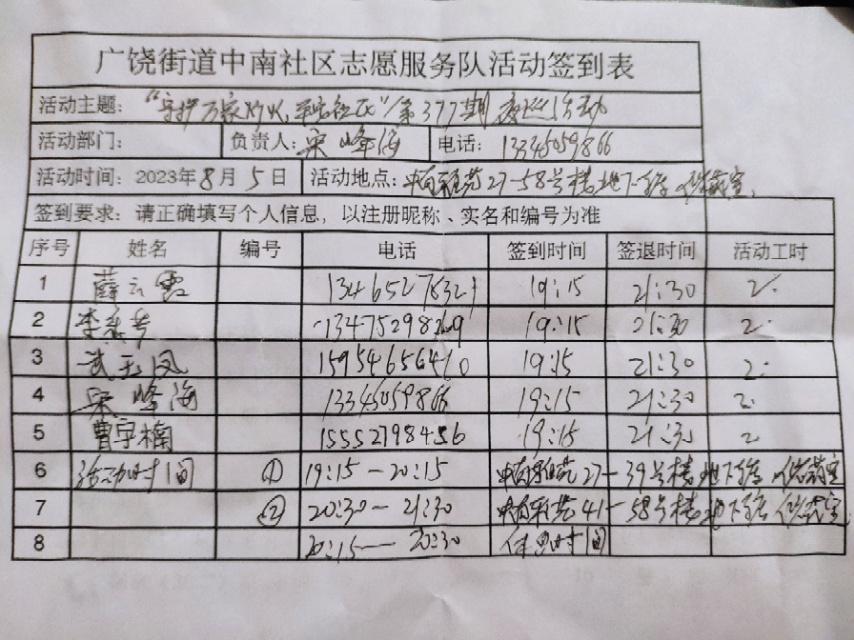 广饶街道中南社区志愿服务队活动签到表
活动主题：“守护万家灯火，平安社区”第377期夜巡活动
活动部门： 负责人：宋峰海 电话：13345059866
活动时间：2023年8月5日 活动地点：中南雅苑27-58号楼地下车库 储藏室。
签到要求：请正确填写个人信息，以注册昵称、实名和编号为准
序号 姓名 编号 电话 签到时间 签退时间 活动工时
1 薛云霞 19:15 21:30 2.
2 19:15 21:30 2.
3 武玉凤 15954656410 19:15 21:30 2.
4 宋峰海 13345059866 19:15 21:30 2.
5 曹宇楠 15552798456 19:15 21:30 2
6 活动时间 ① 19:15-20:15 中南雅苑27-39号楼地下车库 储藏室
7 ② 20:30-21:30 中南雅苑41-58号楼地下车库 储藏室
8 20:15-20:30 休息时间